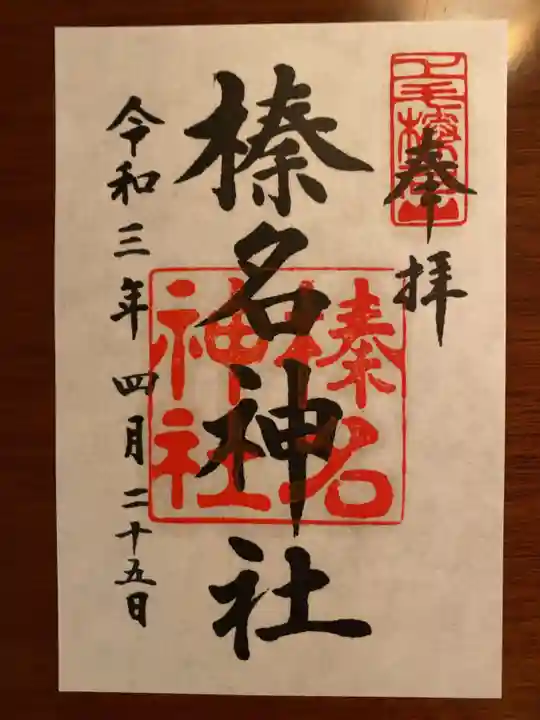 上毛榛名山
奉拝
榛名神社
榛名
神社
令和三年四月二十五日